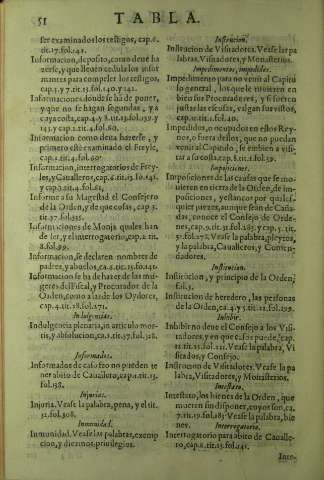 51
TABLA.
ser examinados los testigos, cap.
tit.17.fol.241.
Informacion, de posito, como deue ha
zerse, y que lleuen cedula los infor
mantes para compeler los testigos,
cap.5.y 7.tit.13.fol.140.y 142.
Informaciones donde se hā de poner,
y que no se hagan segundas, y a
cuya costa, cap.4.y 8.tit.13.fol.139.y
143. y cap.2.tit.4.fol.60.
Informacion como deua hazerse, y
primero este examinado el Freyle,
cap.1.tit.4.fol.60.
Informacion, interrogatorios de Frey-
les, y Caualleros, cap.6.tit.13.fol.141.
y cap.2.tit.4.fol.61.
Informe a su Magestad el Consejero
de la Orden, y de que cosas, cap.3.
tit.17.fol.315.
Informaciones de Monja quales han
de ser, y el interrogatorio, cap.2.tit.
8.fol.89.
Informacion, se declaren nombres de
padres, y abuelos, ca.6.tit.13.fol.141.
Informacion se ha de hazer de las mu-
geres del Fiscal, y Procurador de la
Orden, como a las de los Oydores,
cap.4.tit.18.fol.271.
Indulgencias.
Indulgencia plenaria, in articulo mor-
tis, y absolucion, ca.1.tit.37.fol.328.
Informados.
Informados de casos no pueden te
ner abito de Caualleto, cap.1.tit.13.
fol.138.
Injurias.
Injuria. Vease la palabra, pena, y el tit.
32.fol.308.
Inmunidad.
Inmunidad. Vease las palabras, exemp
cion, y diezmos, priuilegios.
Instrucion.
Instrucion de Visitadores. Vease las pa
labras, Visitadores, y Monasterios.
Impedimentos, impedidos.
Impedimento para no venir al Capitu
lo general, los que le tuuieren en
bien sus Procuradores, y si fueren
justas las escusas, valgan sus votos,
cap.10.tit.2.fol.40.
Impedidos, o ocupados en estos Rey-
nos, o fuera dellos, que no puedan
venir al Capitulo, se embien a visi-
tar a su costa, cap.8.tit.2.fol.39.
Imposiciones.
Imposiciones de las causas que se mo-
uieren en tierra de la Orden, de im-
posiciones, y estancos por quales-
quier juezes, aunque sean de Caña-
das, conoce el Consejo de Orde-
nes, cap.9.tit.17.fol.285. y cap.
tit.fol.272. Vease la palabra, pleytos,
y la palabra, Caualleros, y Conten-
dadores.
Institucion.
Institucion, y principio de la Orden,
fol.5.
Institucion de heredero, las personas
de la Orden, ca.4.y 7.tit.12.fol.129.
Inhibir.
Inhibir no deue el Consejo a los Visi-
tadores, y en que casos puede, cap.
12.tit.15.fol.211. Vease la palabra, Vi
sitados, y Consejo.
Instrucion de Visitadores. Vease la pa
labra, Visitadores, y Monasterios.
Intestato.
Intestato, los bienes de la Orden, que
mueren sin disponer, cuyos son, ca.
7.tit.13.fol.185. Vease la palabra, bie
nes.
Interrogatorio.
Interrogatorio para abito de Cauallero,
cap.6.tit.13.fol.141.
Inte-